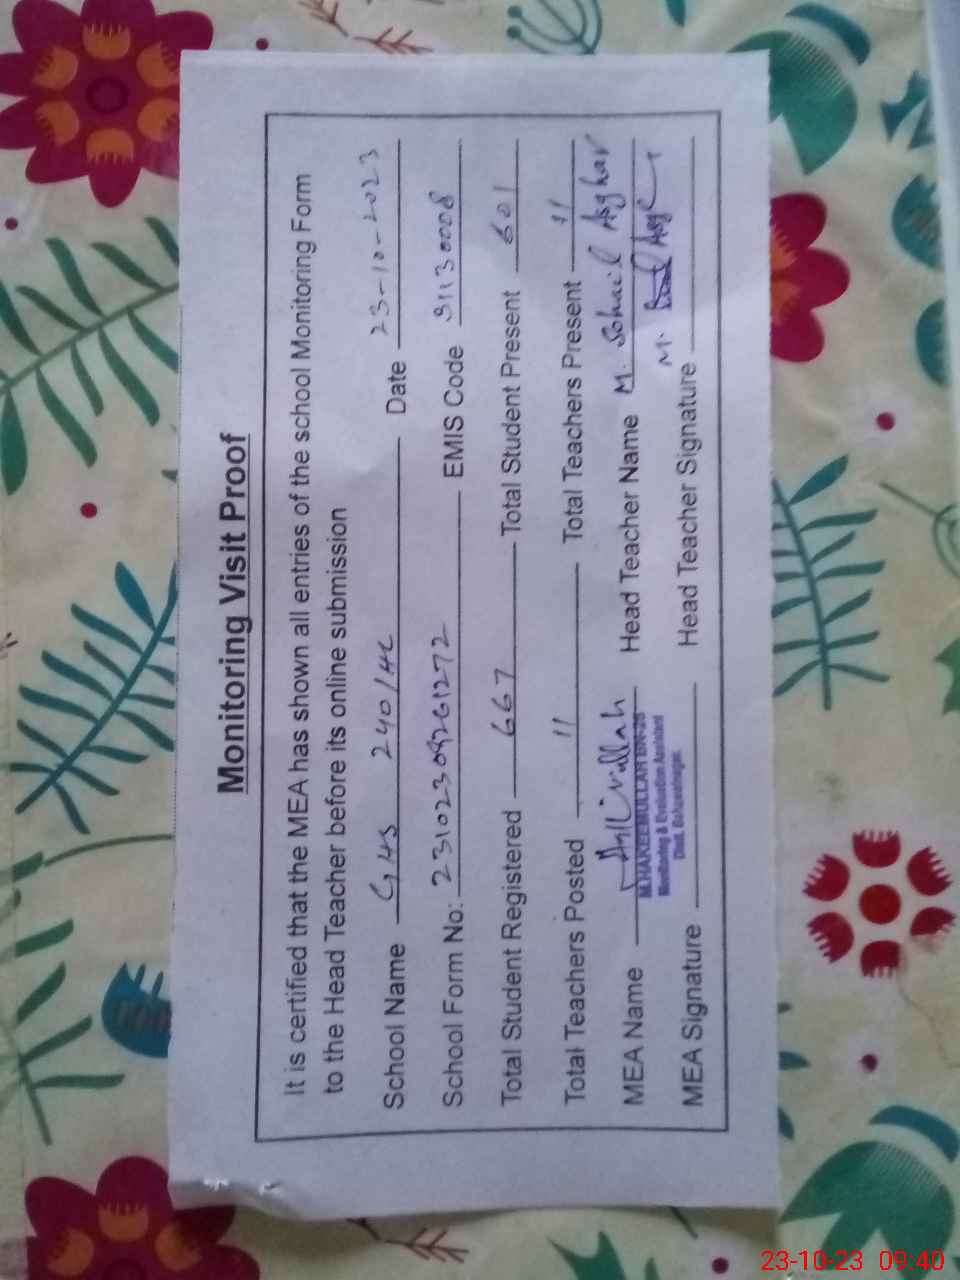 Monitoring Visit Proof
It is certified that the MEA has shown all entries of the school Monitoring Form
to the Head Teacher before its online submission
School Name GHS 240/HL Date 23-10-2023
School Form No: 23102309261272 EMIS Code 31130008
Total Student Registered 667 Total Student Present 601
Total Teachers Posted 11 Total Teachers Present 11
MEA Name Head Teacher Name M. Sohail Asghar
M.HAKEEMULLAH
Monitoring & Evaluation Assistant
Distt. Bahawalnagar
MEA Signature Head Teacher Signature M.
23-10-23 09:40